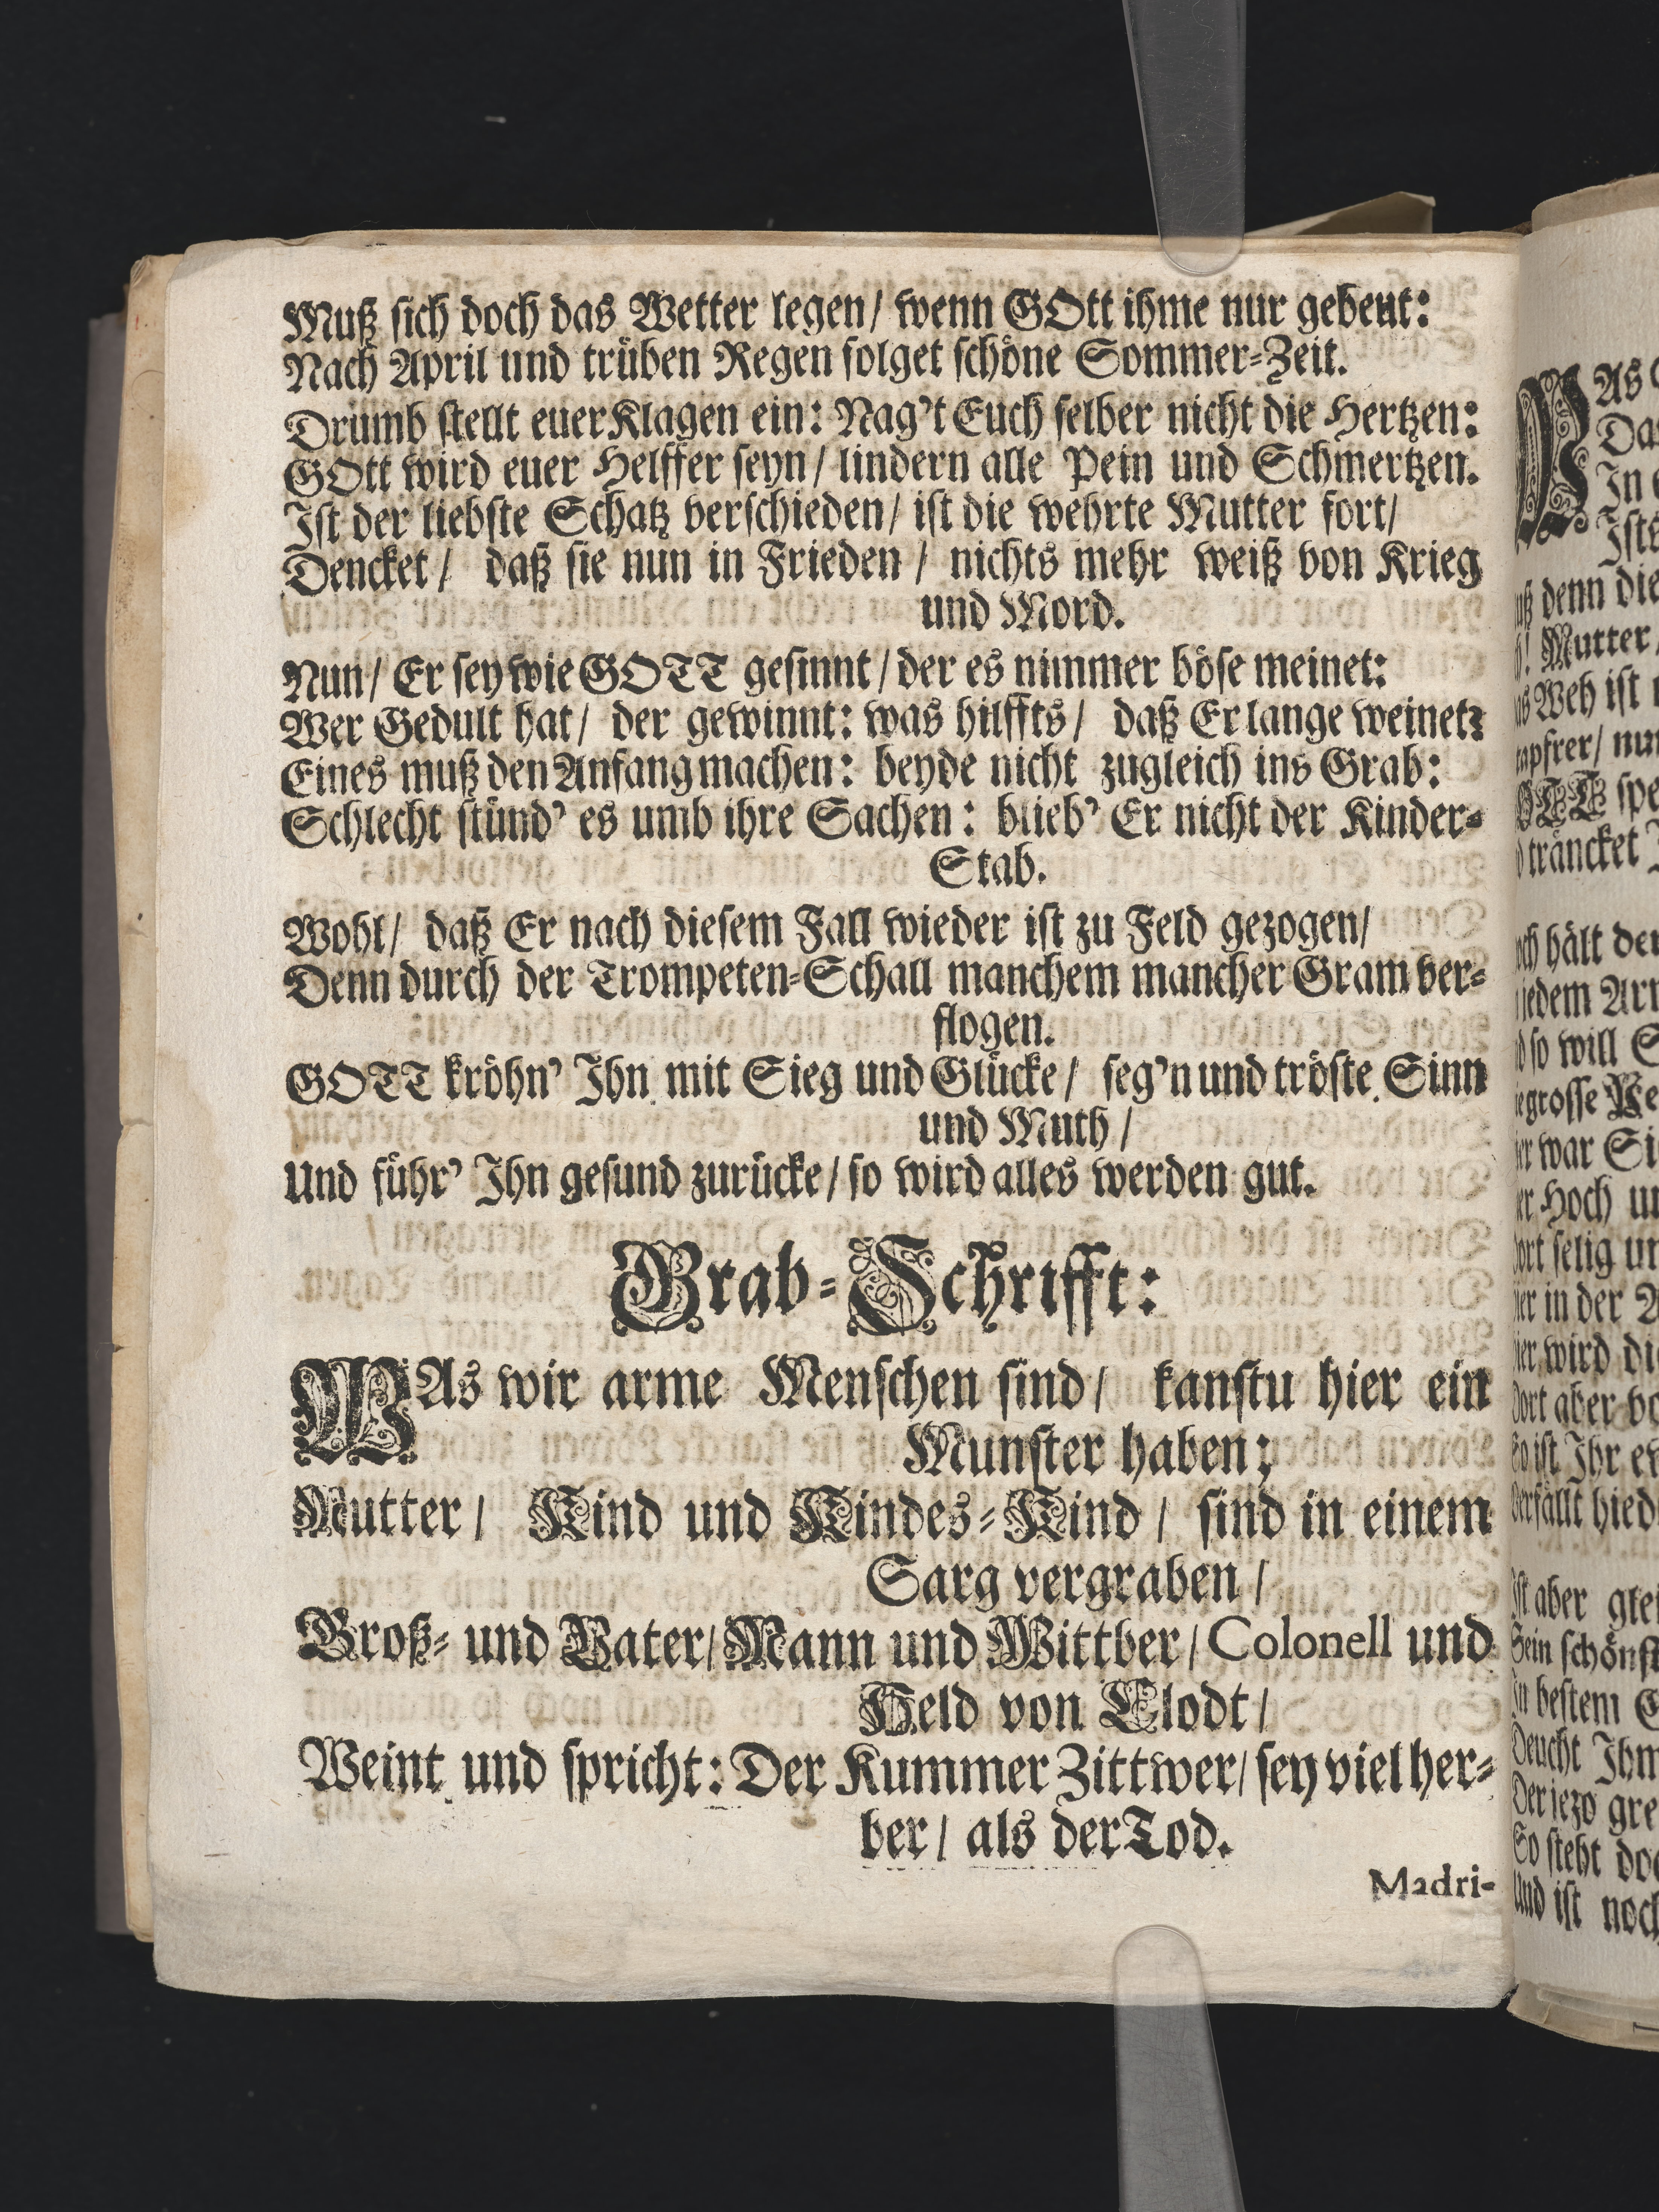 Muß sich doch das Wetter legen/ wenn GOtt ihme nur gebeut:
Nach April und trüben Regen folget schöne Sommer-Zeit.
Drumb stellt euer Klagen ein: Nag't Euch selber nicht die Hertzen:
GOtt wird euer Helffer seyn/ lindern alle Pein und Schmertzen.
Ist der liebste Schatz verschieden/ ist die wehrte Mutter fort/
Dencket/ daß sie nun in Frieden/ nichts mehr weiß von Krieg
und Mord.
Nun/ Er sey wie GOTT gesinnt/ der es nimmer böse meinet:
Wer Gedult hat/ der gewinnt: was hilffts/ daß Er lange weinet?
Eines muß den Anfang machen: beyde nicht zugleich ins Grab:
Schlecht stünd' es umb ihre Sachen: blieb' Er nicht der Kinder-
Stab.
Wohl/ daß Er nach diesem Fall wieder ist zu Feld gezogen/
Denn durch der Trompeten-Schall manchem mancher Gram ver-
flogen.
GOTT kröhn' Ihn mit Sieg und Glücke/ seg'n und tröste Sinn
und Muth/
Und führ' Ihn gesund zurücke/ so wird alles werden gut.
Grab-Schrifft:
WAs wir arme Menschen sind/ kanstu hier ein
Munster haben;
Mutter/ Kind und Kindes-Kind/ sind in einem
Sarg vergraben/
Groß- und Vater/ Mann und Wittber/ Colonell und
Held von Clodt/
Weint und spricht: Der Kummer Zittwer/ sey viel her-
ber/ als der Tod.
Madri-
As
Da
In
denn die
! Mutter/
Weh ist
spe
träncket
hält der
so will
war Si
Hoch
selig
in der
wird
aber
ist Ihr
hied
aber
Sein schönst
bestem
Deucht Ihm
Der jezo
So steht
Und ist noch